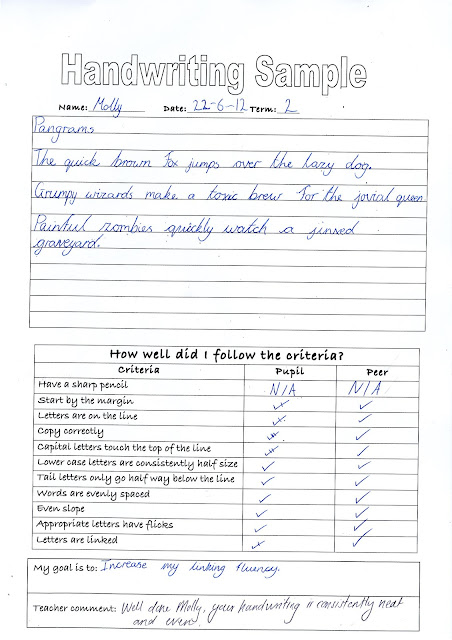 Handwriting Sample
Name: Molly Date: 22-6-12 Term: 2
Pangrams
The quick brown fox jumps over the lazy dog.
Grumpy wizards make a toxic brew for the jovial queen
Painful zombies quickly watch a jinxed
graveyard.
How well did I follow the criteria?
Criteria Pupil Peer
Have a sharp pencil N/A N/A
Start by the margin ✓ ✓
Letters are on the line ✓ ✓
Copy correctly ✓ ✓
Capital letters touch the top of the line ✓ ✓
Lower case letters are consistently half size ✓ ✓
Tail letters only go half way below the line ✓ ✓
Words are evenly spaced ✓ ✓
Even slope ✓ ✓
Appropriate letters have flicks ✓ ✓
Letters are linked ✓ ✓
My goal is to: Increase my linking fluency.
Teacher comment: Well done Molly, your handwriting is consistently neat
and even.